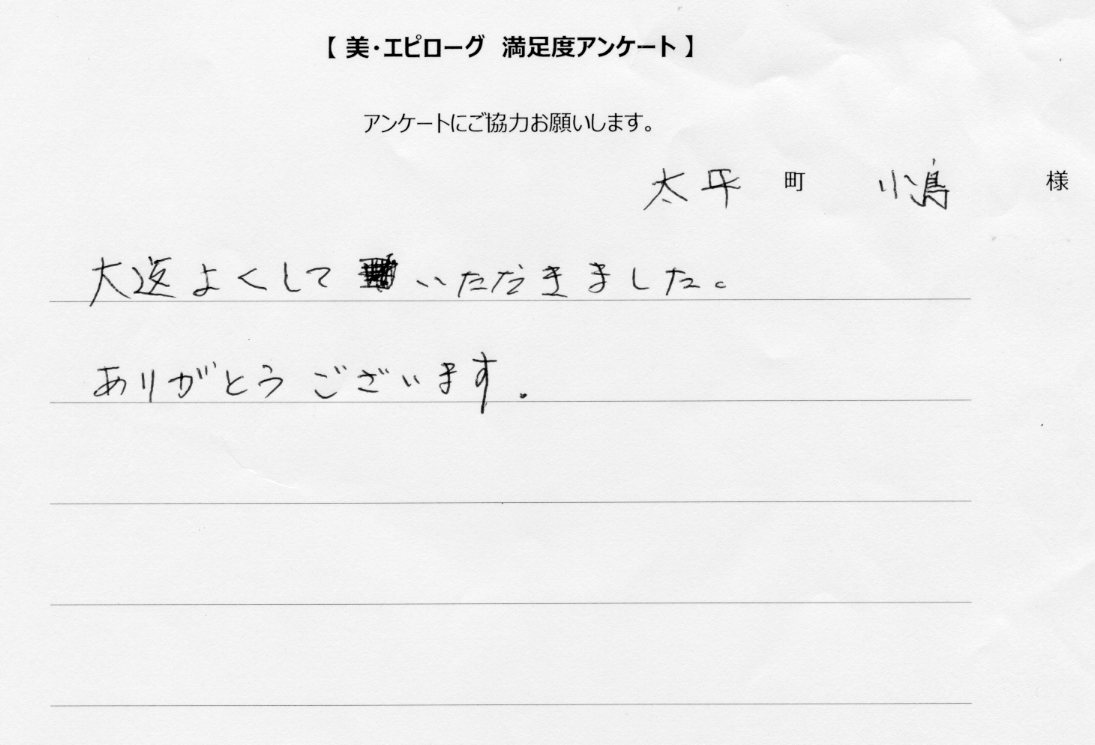 【 美・エピローグ 満足度アンケート 】
アンケートにご協力お願いします。
太平 町 小島 様
大返よくして いただきました。
ありがとうございます.